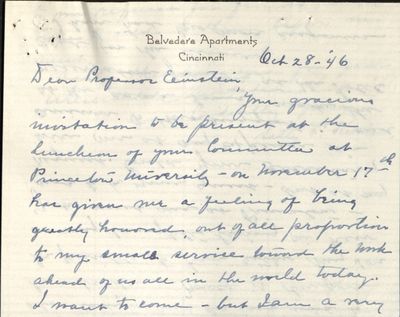 Belvedere Apartments
Cincinnati
Oct 28-'46
Dear Professor Einstein,
Your gracious
invitation to be present at the
luncheon of your Committee at
Princeton University - on November 17th
has given me a feeling of being
greatly honored, out of all proportion
to my small service toward the work
ahead of us all in the world today.
I want to come - but I am a very